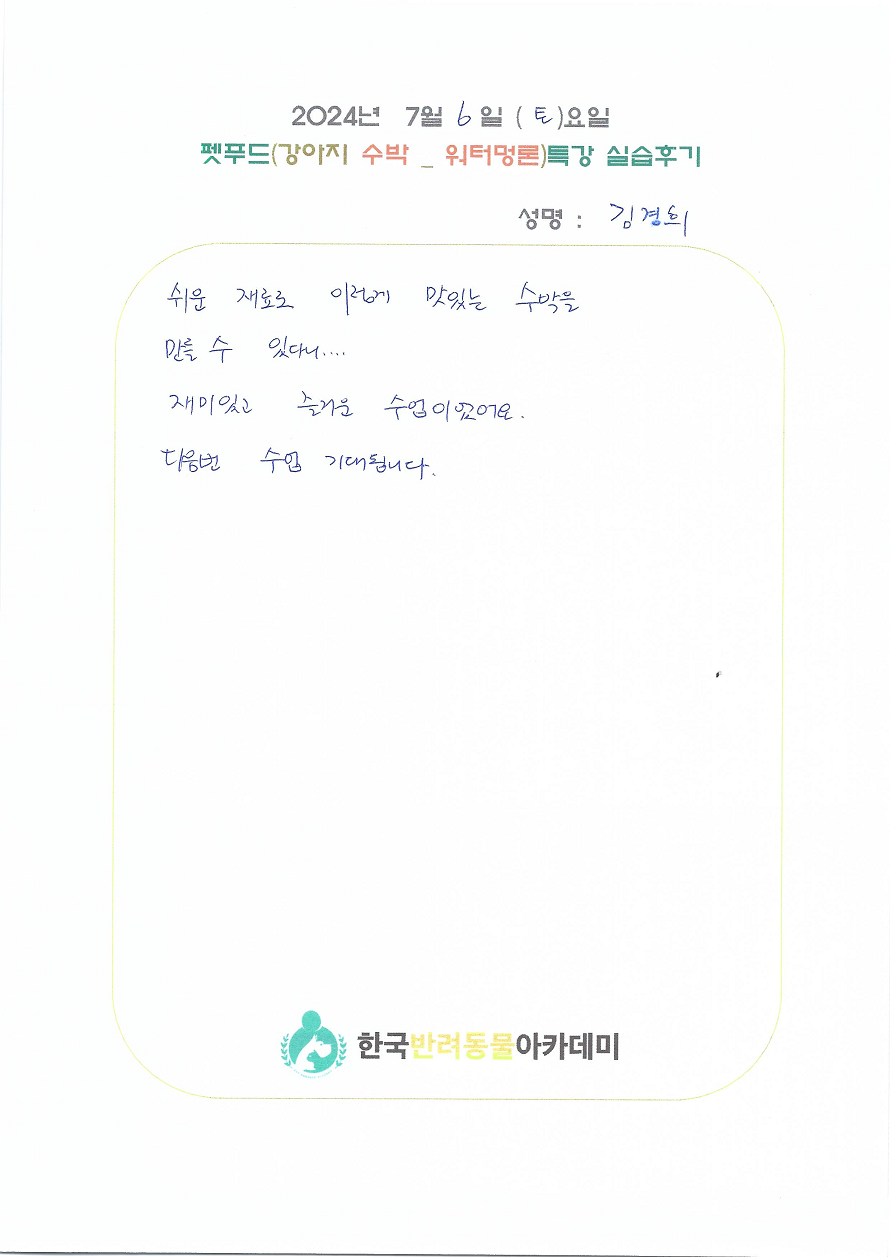 2024년 7월 6일 (토)요일
펫푸드(강아지 수박 _ 워터멍론)특강 실습후기
성명 : 김경희
쉬운 재료로 이렇게 맛있는 수박을
만들 수 있다니....
재미있고 즐거운 수업이었어요.
다음번 수업 기대됩니다.
한국반려동물아카데미